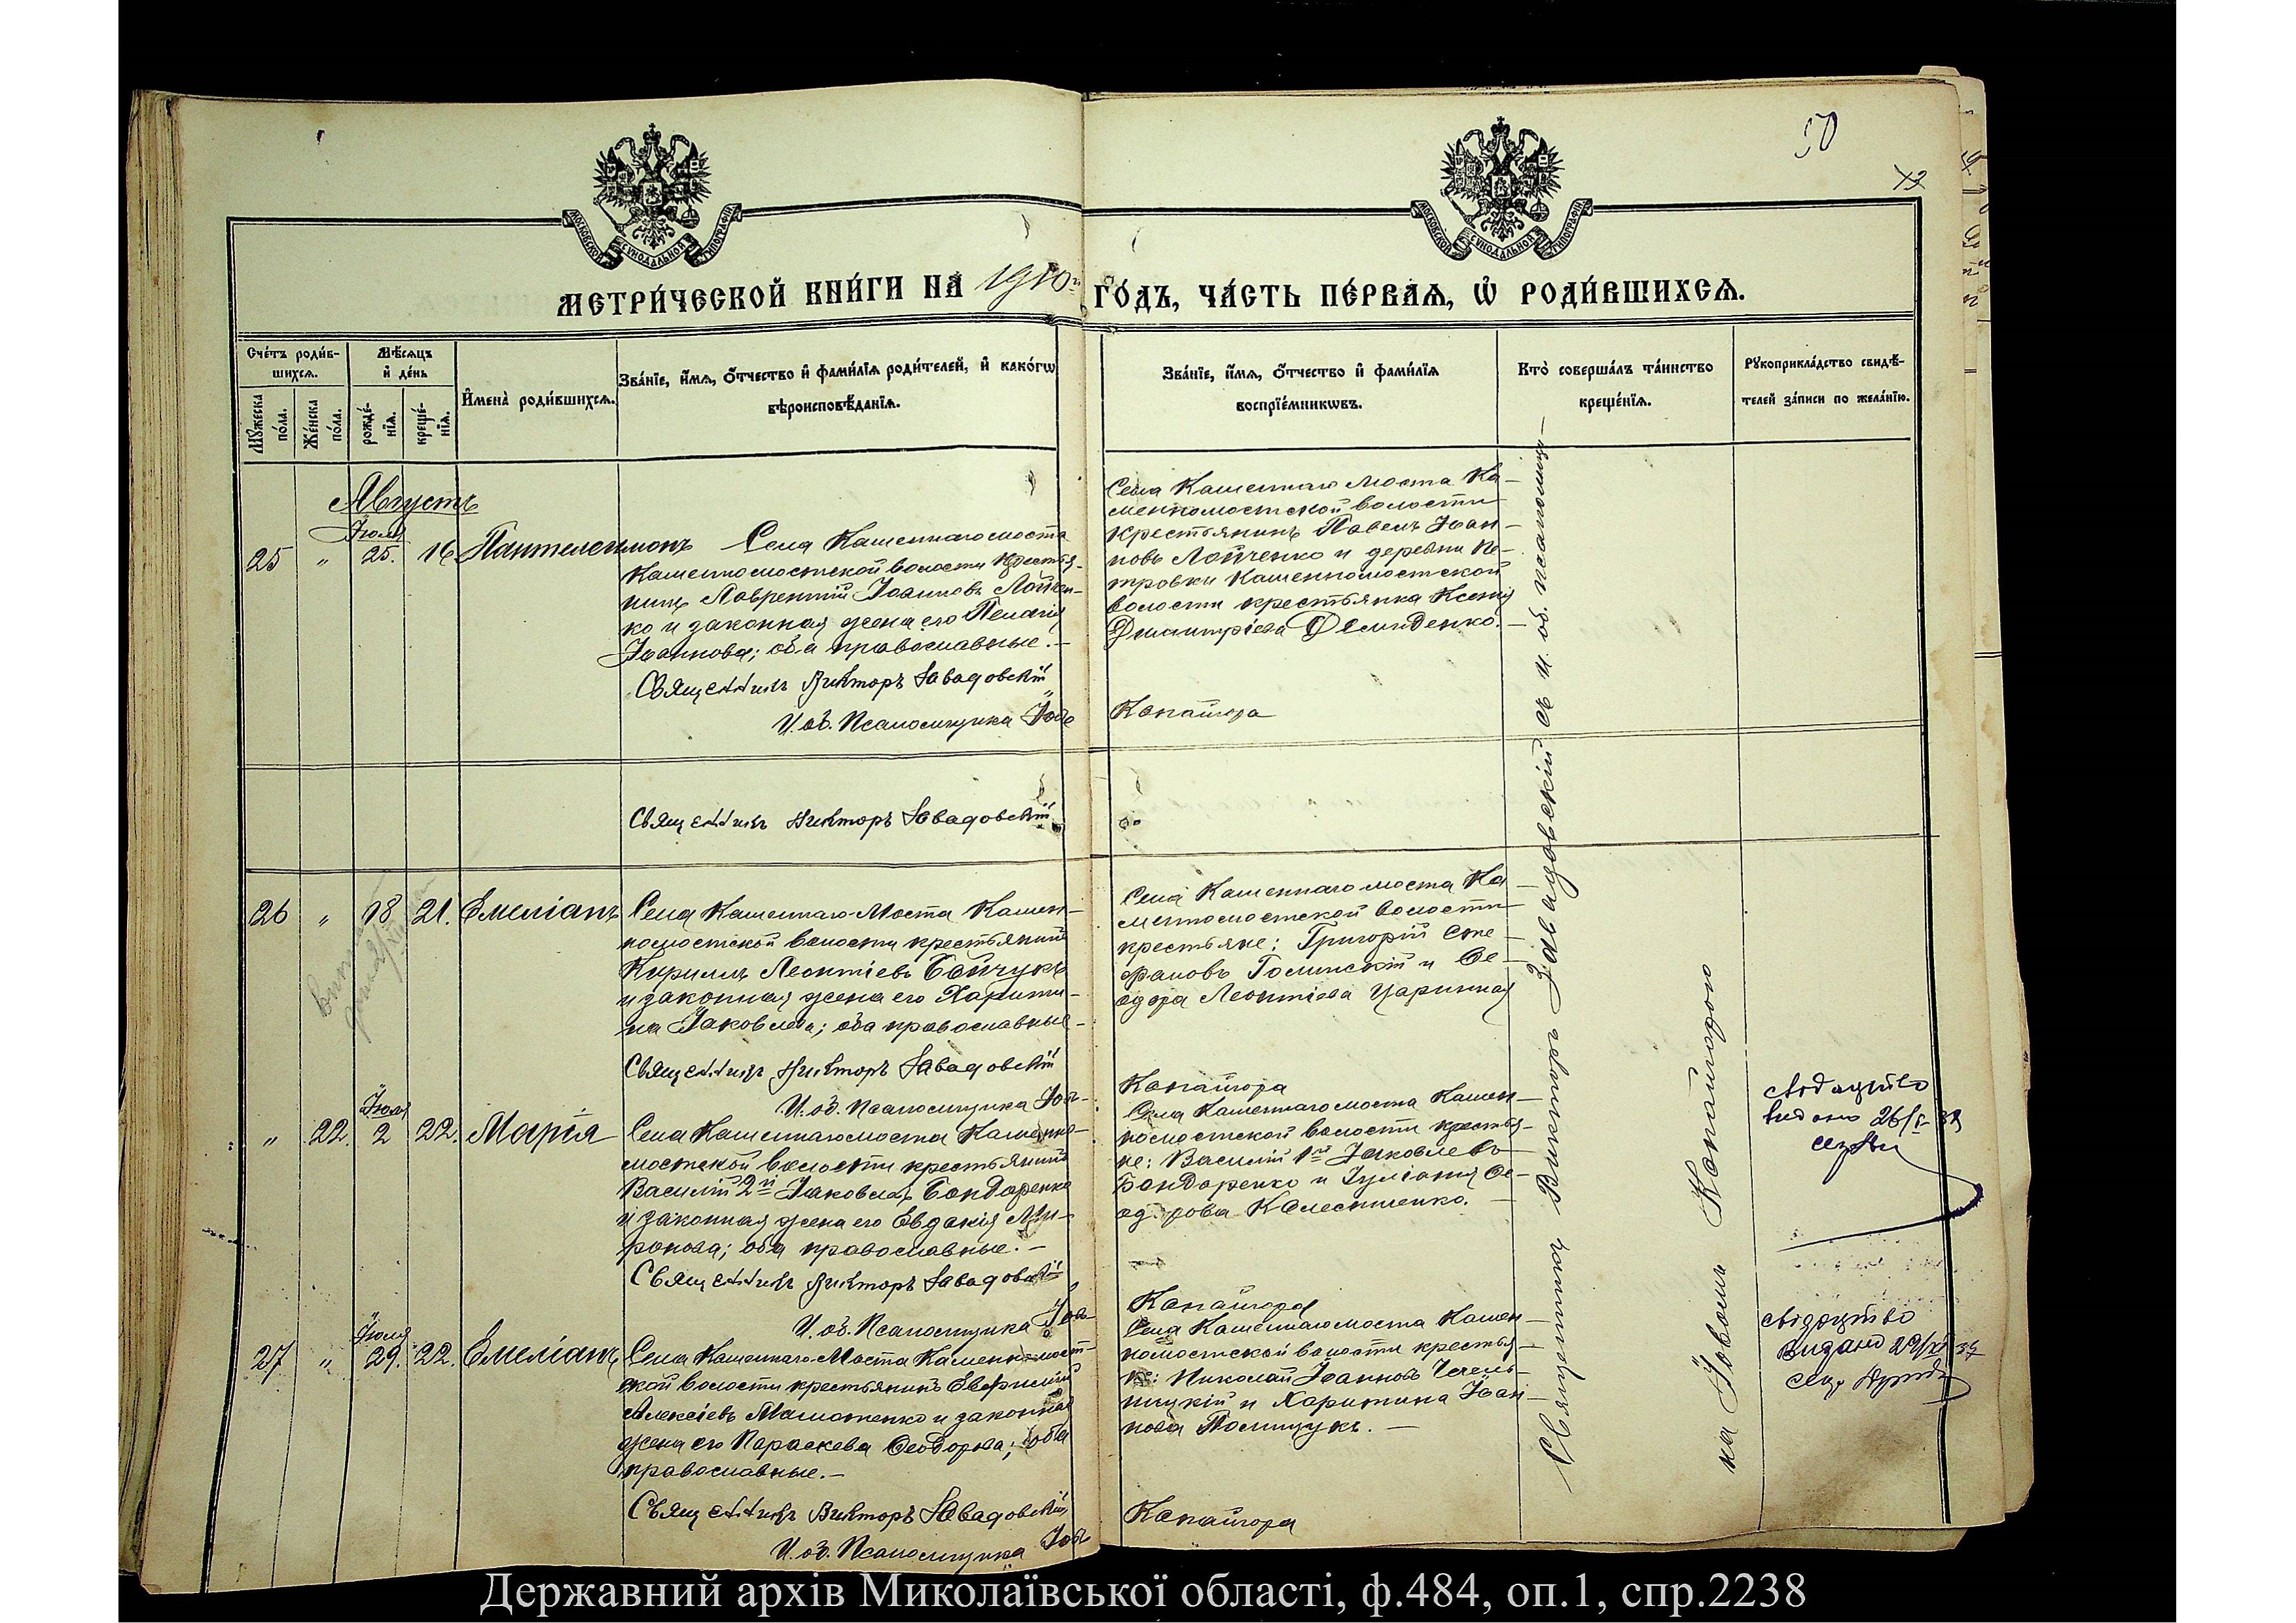 50
43
МОСКОВСКОЙ СѴНОДАЛЬНОЙ ТИПОГРАФІИ
МОСКОВСКОЙ СѴНОДАЛЬНОЙ ТИПОГРАФІИ
МЕТРИ́ЧЕСКОЙ КНИ́ГИ НА 1910 ГО́ДЪ, ЧА́СТЬ ПЕ́РВАѦ, Ѡ҆ РОДИ́ВШИХСѦ.
Сче́тъ роди́в-
шихсѧ.
Мꙋжеска по́ла.
Же́нска по́ла.
Мѣ́сѧцъ
и҆ де́нь
рожде́-
нїѧ.
креще́-
нїѧ.
И҆мена̀ роди́вшихсѧ.
Зва́нїе, и҆́мѧ, ѻ҆́тчество и҆ фами́лїѧ роди́телей, и҆ како́гѡ
вѣроисповѣ́данїѧ.
Зва́нїе, и҆́мѧ, ѻ҆́тчество и҆ фами́лїѧ
воспрїе́мникѡвъ.
Кто̀ соверша́лъ та́инство
креще́нїѧ.
Рꙋкоприкла́дство свидѣ́-
телей за́писи по жела́нїю.
Августъ
Іюля
25 " 25. 16 Пантелеимонъ
Села Каменнаго моста
Каменномостской волости крестья-
нинъ Лаврентій Іоанновъ Лойчен-
ко и законная жена его Пелагія
Іоаннова; оба православные. —
Священникъ Викторъ Завадовскій
И. об. Псаломщика Іовъ
Села Каменнаго Моста Ка-
менномостской волости
крестьянинъ Павелъ Іоан-
новъ Лойченко и деревни Пе-
тровки Каменномостской
волости крестьянка Ксенія
Димитріева Демиденко. —
Копайгора
Священникъ Викторъ Завадовскій
26 " 18 21. Емеліанъ
Села Каменнаго Моста Камен-
номостской волости крестьянинъ
Кириллъ Леонтіевъ Бойчукъ
и законная жена его Харити-
на Іаковлева; оба православные —
Священникъ Викторъ Завадовскій
И. об. Псаломщика Іовъ
Села Каменнаго моста Ка-
менномостской волости
крестьяне: Григорій Сте-
фановъ Голинскій и Ѳе-
одора Леонтіева Царинная
Копайгора
Іюля
" 22. 2 22. Марія
Села Каменнаго моста Каменно-
мостской волости крестьянинъ
Василій 2й Іаковлевъ Бондаренко
и законная жена его Евдокія Ми-
ронова; оба православные. —
Священникъ Викторъ Завадовскій
И. об. Псаломщика Іовъ
Села Каменнаго моста Камен-
номостской волости крестья-
не: Василій 1й Іаковлевъ
Бондаренко и Іуліанія Ѳе-
одорова Колесниченко. —
Копайгора
свідоцтво
видано
Іюля
27 " 29. 22. Емеліанъ
Села Каменнаго Моста Каменномост-
ской волости крестьянинъ Евфимій
Алексіевъ Мамотенко и законная
жена его Параскева Ѳеодорова; оба
православные. —
Священникъ Викторъ Завадовскій
И. об. Псаломщика Іовъ
Села Каменнаго моста Камен-
номостской волости крестья-
не: Николай Іоанновъ
и Харитина Іоан-
нова Полищукъ. —
Копайгора
свідоцтво
видано
Священникъ Викторъ Завадовскій съ и. об. псаломщи-
ка Іовомъ Копайгорою
Державний архів Миколаївської області, ф.484, оп.1, спр.2238